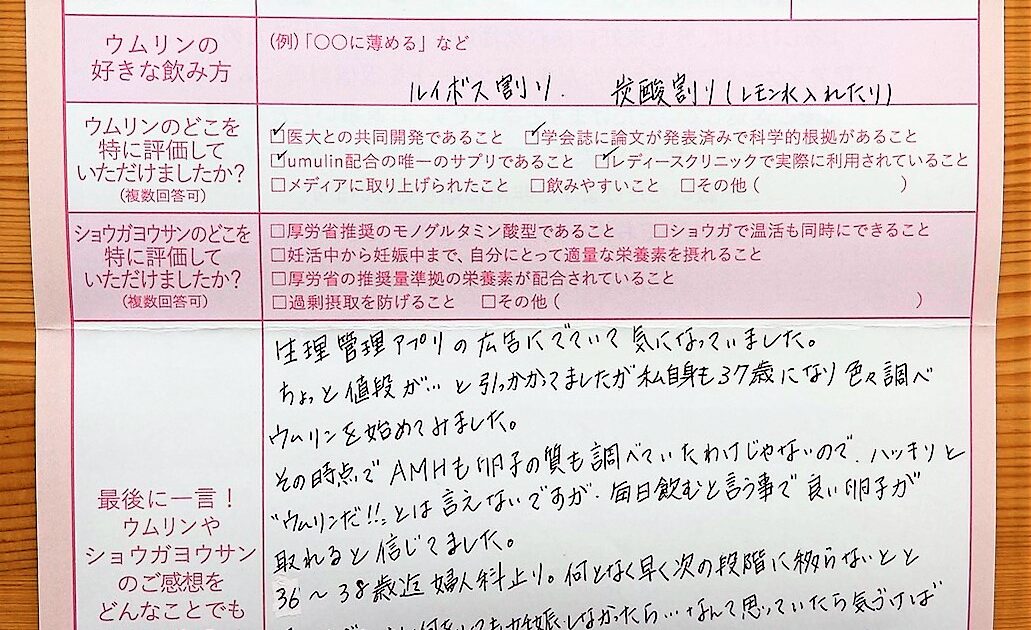 ウムリンの
好きな飲み方
(例)「〇〇に薄める」など
ルイボス割り. 炭酸割り(レモン水入れたり)
ウムリンのどこを
特に評価して
いただけましたか?
(複数回答可)
☑医大との共同開発であること ☑学会誌に論文が発表済みで科学的根拠があること
☑umulin配合の唯一のサプリであること ☑レディースクリニックで実際に利用されていること
□メディアに取り上げられたこと □飲みやすいこと □その他( )
ショウガヨウサンのどこを
特に評価して
いただけましたか?
(複数回答可)
□厚労省推奨のモノグルタミン酸型であること □ショウガで温活も同時にできること
□妊活中から妊娠中まで、自分にとって適量な栄養素を摂れること
□厚労省の推奨量準拠の栄養素が配合されていること
□過剰摂取を防げること □その他( )
最後に一言!
ウムリンや
ショウガヨウサン
のご感想を
どんなことでも
生理管理アプリの広告にでていて気になっていました。
ちょっと値段が…と引っかかってましたが私自身も37歳になり色々調べ
ウムリンを始めてみました。
その時点でAMHも卵子の質も調べていたわけじゃないので、ハッキリと
"ウムリンだ!!"とは言えないですが、毎日飲むと言う事で良い卵子が
取れると信じてました。
36〜38歳迄婦人科止り。何となく早く次の段階に移らないとと
妊娠しなかったら…なんて思っていたら気づけば